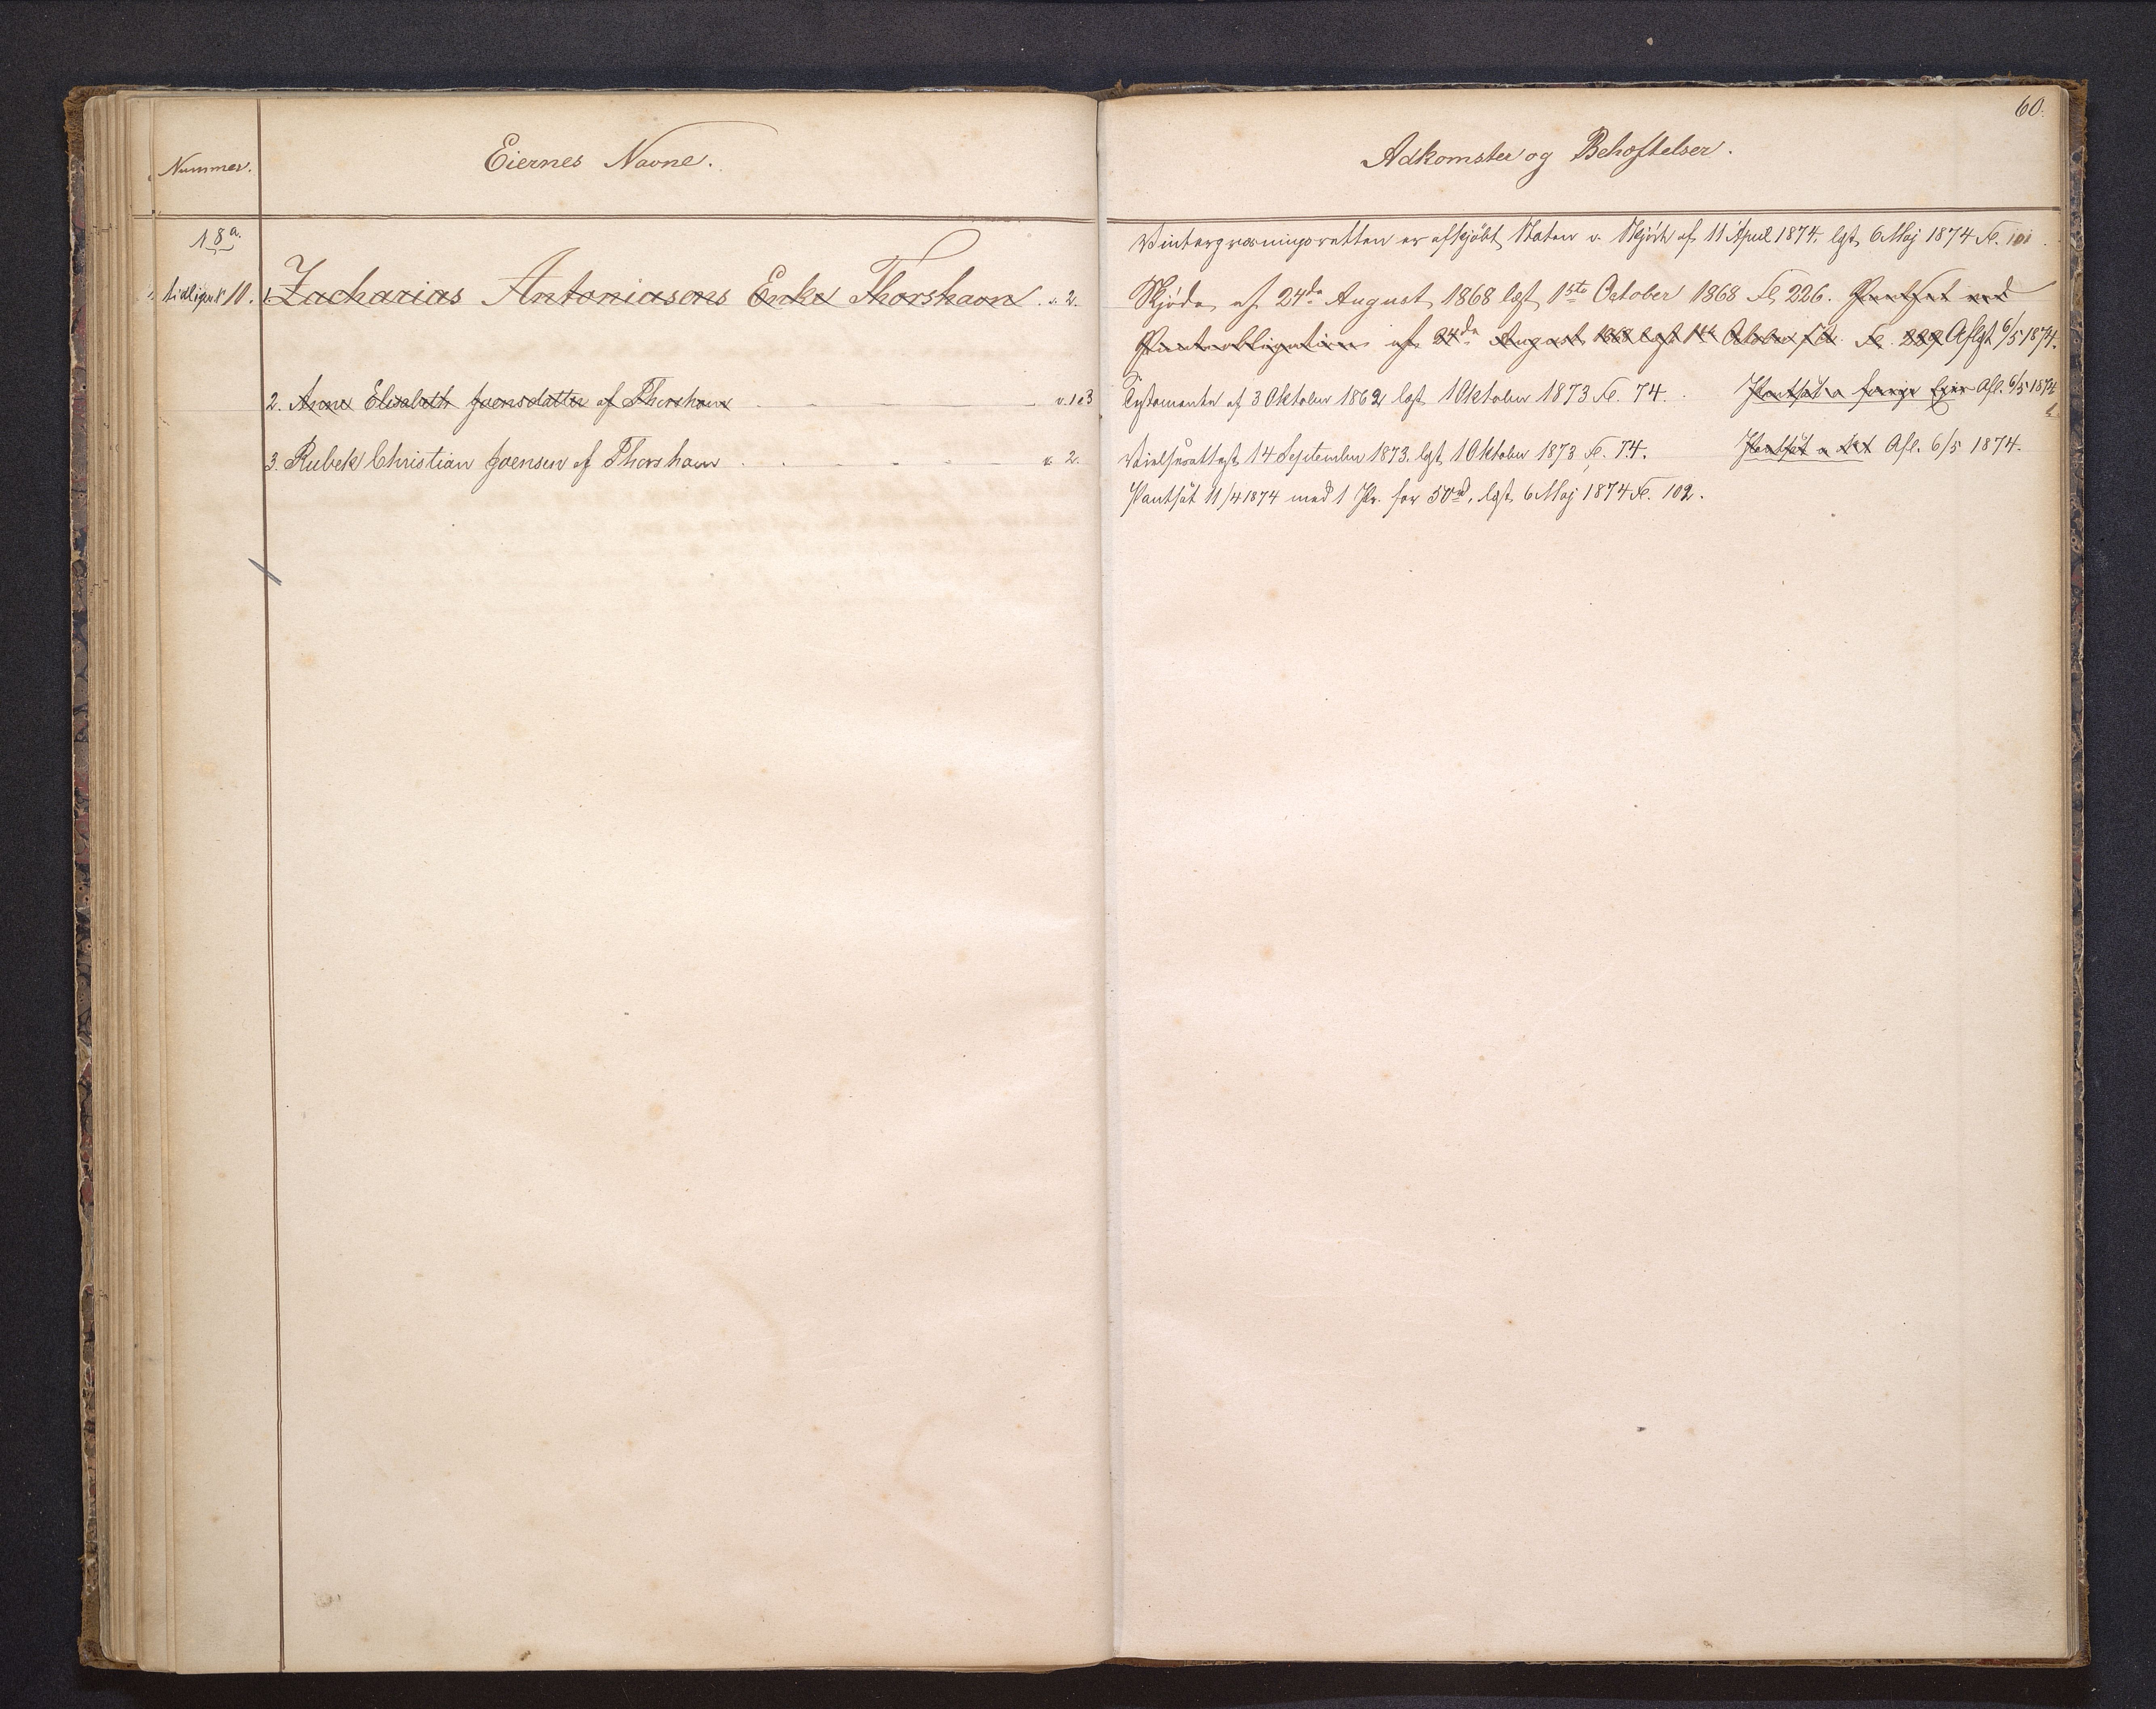 60.
Nummer.
Eiernes Navne.
Adkomster og Behæftelser.
18a.
Vintergræsningsretten er afkjøbt Staten v. Skjøde af 11 April 1874, lgst. 6 Maj 1874 Fo. 101.
tidligere 10. 1. Zacharias Antoniasens Enke Thorshavn. v. 2.
Skjøde af 24de August 1868 læst 1ste October 1868 Fo. 226. Pantsat ved
Panteobligation af 24de August 1868 læst 1ste October s. A. Fo. Aflyst 6/5 1874.
2. Anne Elisabeth Joensdatter af Thorshavn v. 1 e 3
Testamente af 3 Oktober 1862 læst 1 Oktober 1873 Fo. 74. Pantsat a forrige Ejer Afl. 6/5 1874
3. Rubek Christian Joensen af Thorshavn v 2.
Vielsesattest 14 September 1873. lgst. 1 Oktober 1873 Fo. 74. Pantsat Afl. 6/5 1874.
Pantsat 11/4 1874 med 1 Pr. for 50 rd, læst 6 Maj 1874 Fo. 102.